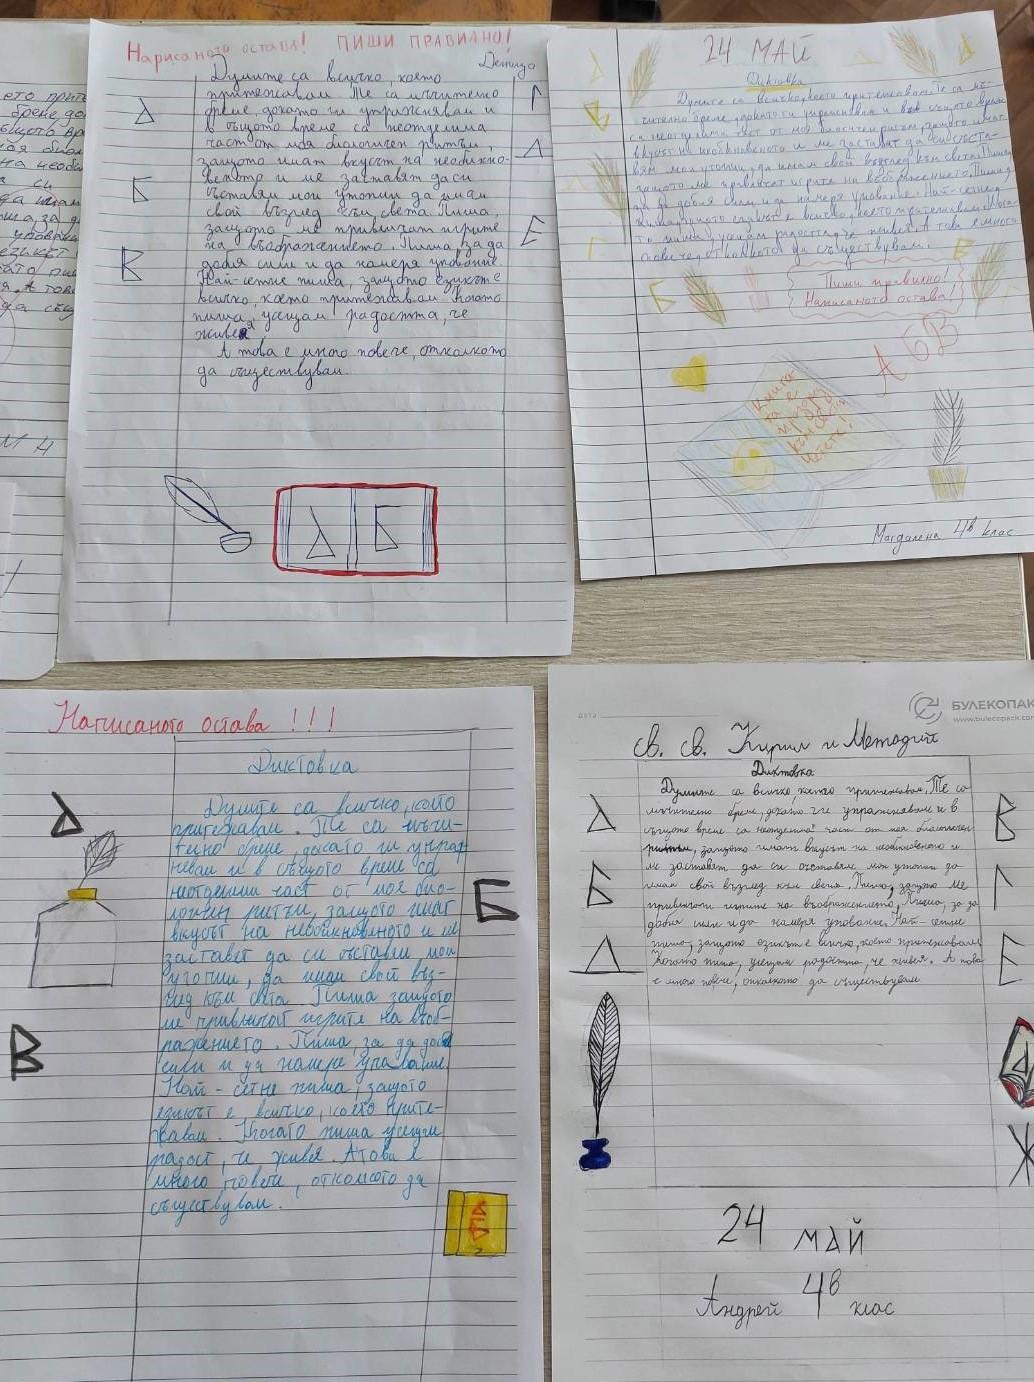 Нарисаното остава! ПИШИ ПРАВИЛНО!
Деница
Думите са всичко, което
притежавам. Те са мъчително
бреме, докато ги упражнявам и
в същото време са неотделима
част от моя биологичен ритъм,
защото имат вкусът на необикно-
веното и ме заставят да си
съставям мои утопии да имам
свой възглед към света. Пиша,
защото ме привличат игрите
на въображението. Пиша, за да
добия сили и да намеря упование.
Най-сетне пиша, защото езикът е
всичко, което притежавам. Когато
пиша, усещам радостта, че
живея
А това е много повече, отколкото
да съществувам.
А
Б
В
Г
Д
Е
А Б
24 МАЙ
Диктовка
Думите са всичко, което притежавам. Те са мъ-
чително бреме, докато ги упражнявам и във същото време
са неотделима част от моя биологичен ритъм, защото имат
вкусът на необикновеното и ме заставят да си съста-
вям мои утопии, да имам свой възглед към света. Пиша,
защото ме привличат игрите на въображението. Пиша,
за да добия сили и да намеря упование. Най-сетне
всичко, което притежавам. Кога-
то пиша, усещам радостта, че живея. А това е много
повече, отколкото да съществувам.
А
В
Г
Б
Д
В
Пиши правилно!
Написаното остава!
А Б В
Книга
та е
към света
Четете!
Магдалена 4в клас
Написаното остава !!!
Диктовка
Думите са всичко, който
притежавам. Те са мъчи-
телно бреме, докато ги упраж
невам и в същото време са
неотделим част от моя био-
логичен ритъм, защото имат
вкусът на необикновеното и ме
заставят да си съставям мои
утопии, да имам свой въз-
глед към света. Пиша защото
ме привличат игрите на въоб-
ражението. Пиша, за да добия
сили и да намеря упование.
Най-сетне пиша, защото
езикът е всичко, което прите-
жавам. Когато пиша усещам
радост, че живея. А това е
много повече, отколкото да
съществувам.
А
Б
В
АБВ
БУЛЕКОПАК
www.bulecopack.com
Дата
св. св. Кирил и Методий
Диктовка
Думите са всичко, което притежавам. Те са
мъчително бреме, докато ги упражнявам и в
същото време са неотделима част от моя биологичен
ритъм, защото имат вкусът на необикновеното и
ме заставят да си съставям мои утопии да
имам свой възглед към света. Пиша, защото ме
привличат игрите на въображението. Пиша, за да
добия сили и да намеря упование. Най-сетне
пиша, защото езикът е всичко, което притежавам.
Когато пиша, усещам радостта, че живея. А това
е много повече, отколкото да съществувам
А
Б
Д
В
Г
Е
Ж
24 май
Андрей 4в клас